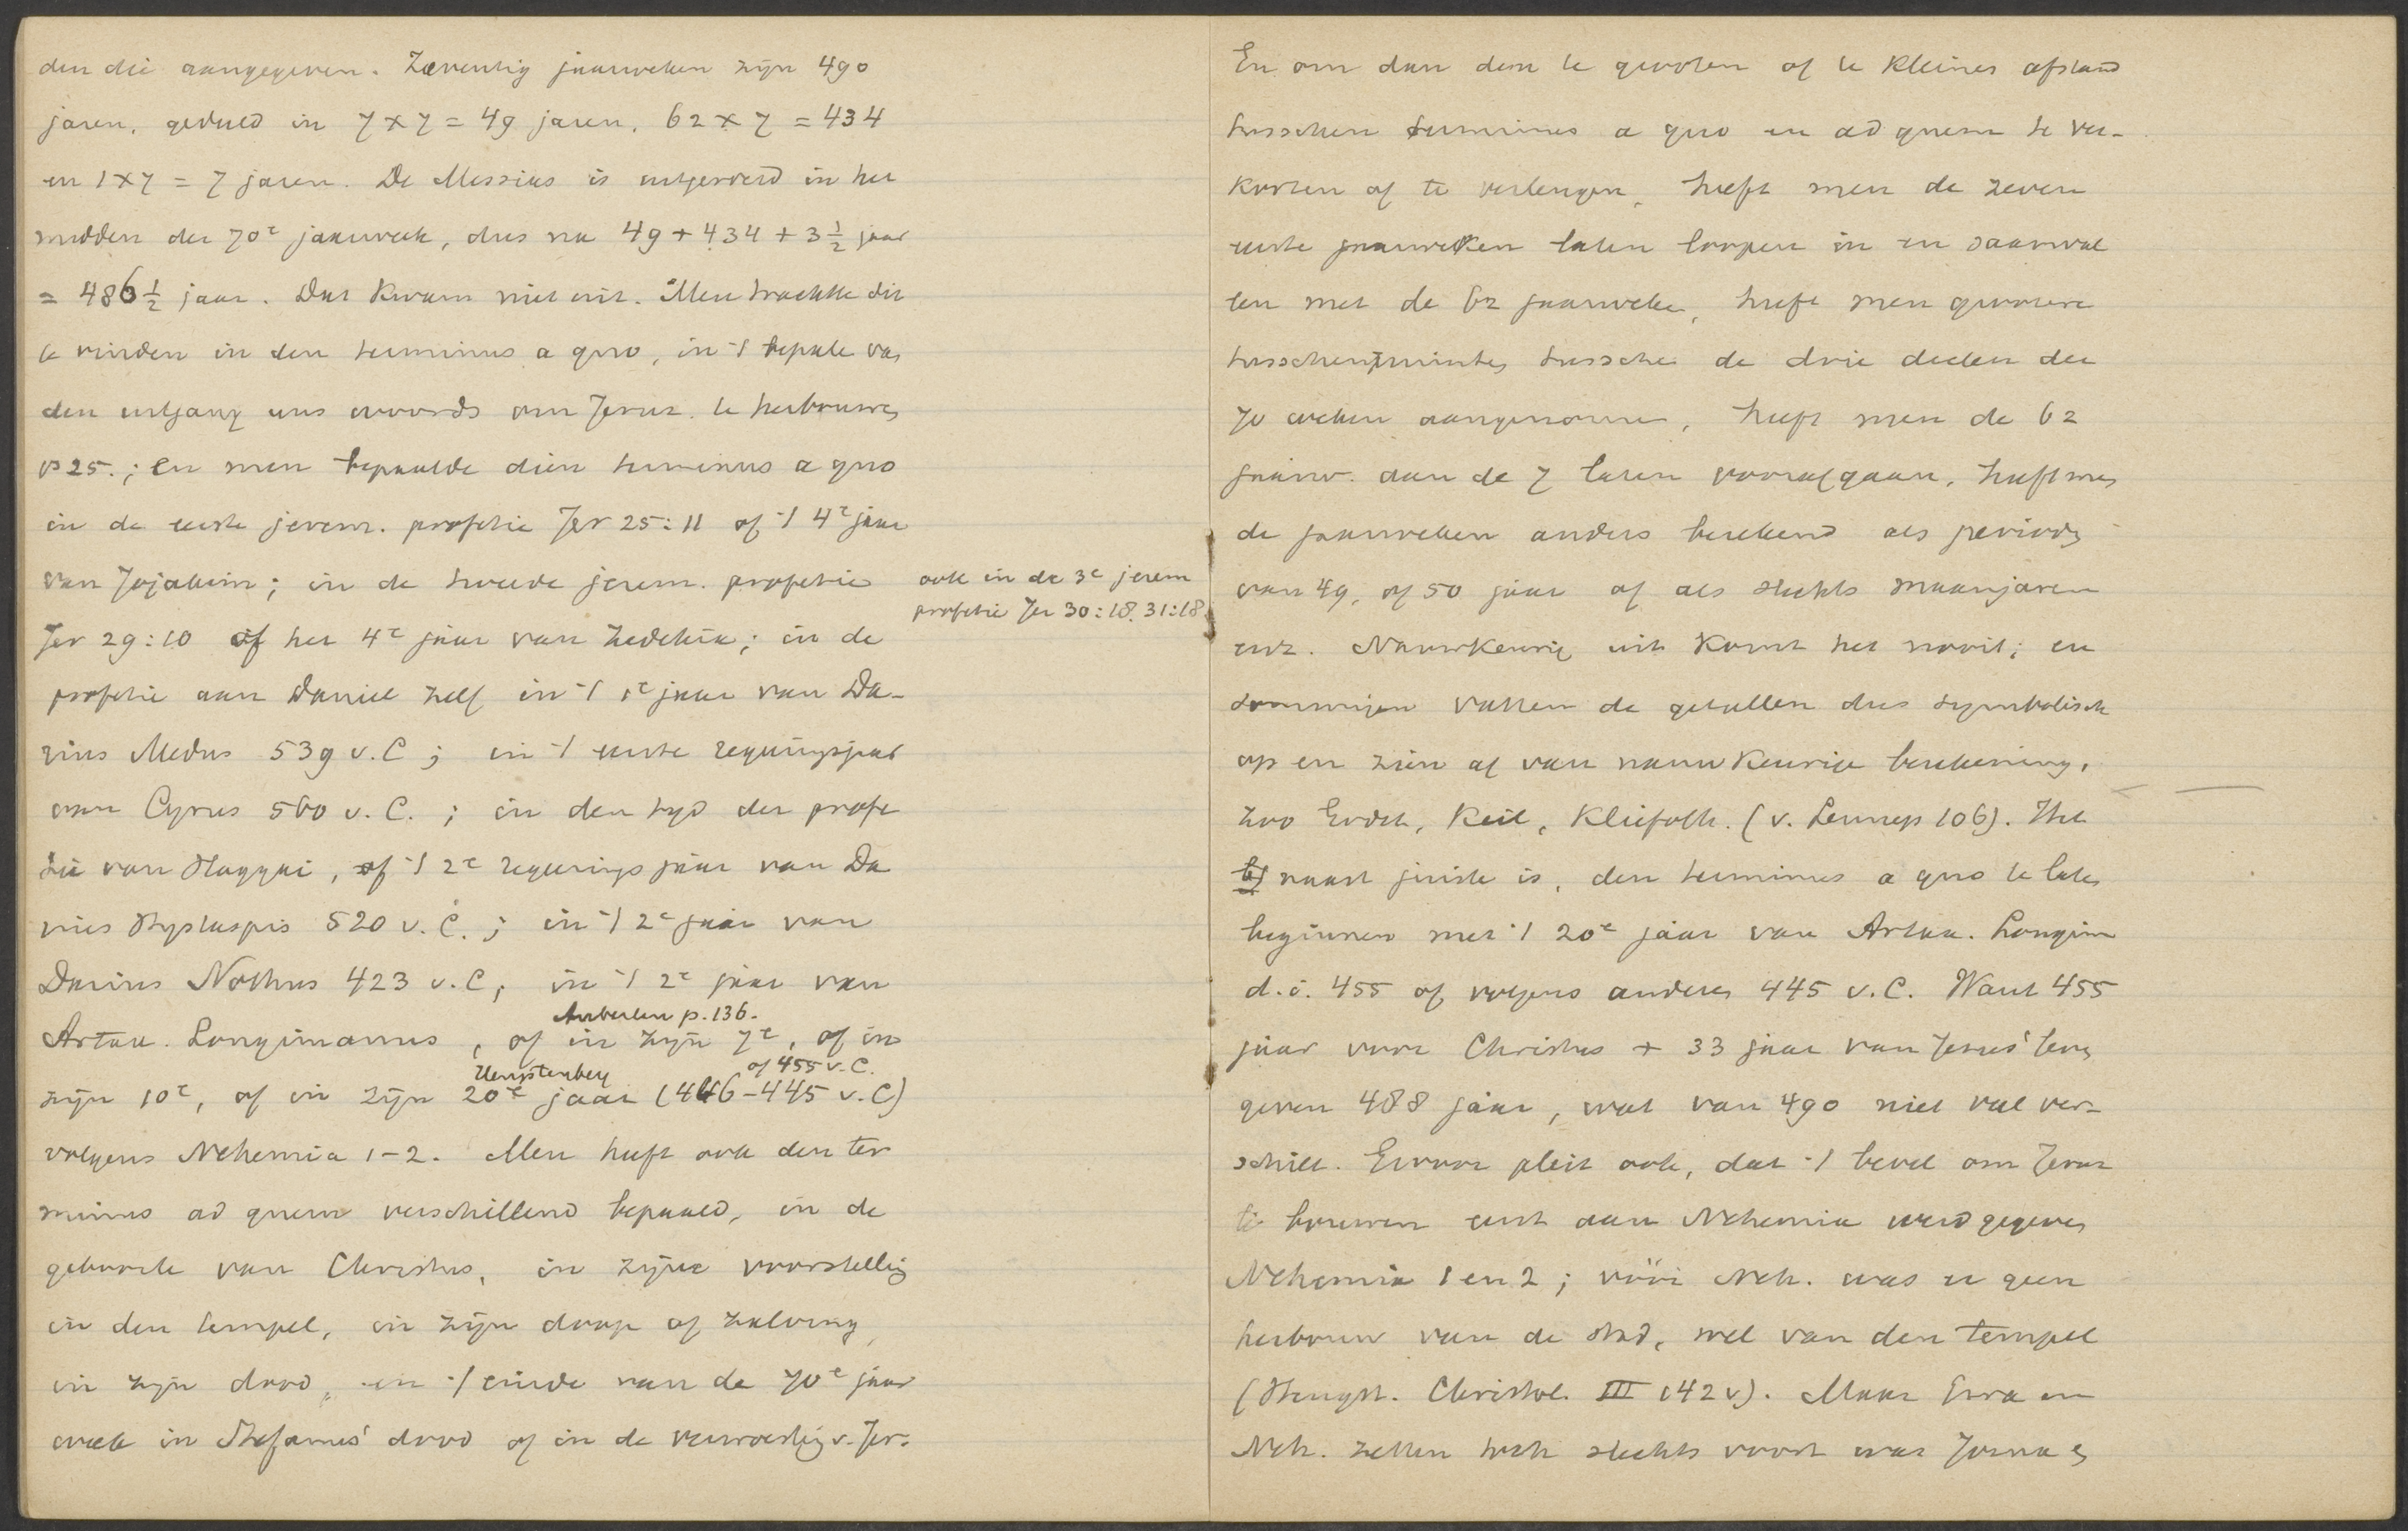 den die aangegeven. Zeventig jaarweken zijn 490
jaren, gedeeld in 7 x 7 = 49 jaren, 62 x 7 = 434
en 1 x 7 = 7 jaren. De Messias is uitgeroeid in het
midden der 70e jaarweek, dus na 49 + 434 + 3 1/2 jaar
= 486 1/2 jaar. Dat kwam niet uit. Men trachtte dit
te vinden in den terminus a quo, in 't bepale van
den uitgang uns woords om Jeruz. te herbouwen
vs 25.; en men bepaalde dien terminus a quo
in de eerste jerem. profetie Jer 25:11 of 't 4e jaar
van Jojakim; in de tweede jerem. profetie
ook in de 3e jerem
profetie Jer 30:18. 31:18
Jer 29:10 of het 4e jaar van Zedekia; in de
profetie aan Daniel zelf in 't 1e jaar van Da-
rius Medus 539 v. C; in 't eerste regeeringsjaar
van Cyrus 560 v. C.; in den tijd der profe
tie van Haggai, of 't 2e regeeringsjaar van Da
rius Hystaspis 520 v. C.; in 't 2e jaar van
Darius Nothus 423 v. C, in 't 2e jaar van
Auberlen p. 136.
Artax. Longimanus, of in zijn 7e, of in
Hengstenberg of 455 v. C.
zijn 10e, of in zijn 20e jaar (446-445 v. C)
volgens Nehemia 1-2. Men heeft ook den ter
minus ad quem verschillend bepaald, in de
geboorte van Christus, in zijne voorstellig
in den tempel, in zijn doop of zalving
in zijn dood, in 't einde van de 70e jaar
week in Stefanus' dood of in de verwoestig v. Jer.
En om dan den te grooten of te kleinen afstand
tusschen terminus a quo en ad quem te ver-
korten of te verlengen, heeft men de zeven
eerste jaarweken laten loopen in en saamval
len met de 62 jaarweken, heeft men grootere
tusschenruimten tussche de drie deelen der
70 weken aangenomen, heeft men de 62
jaarw. aan de 7 laten voorafgaan, heeft men
de jaarweken anders berekend als perioden
van 49, of 50 jaar of als slechts maanjaren
enz. Nauwkeurig uit komt het nooit; en
sommigen vatten de getallen dus symbolisch
op en zien af van nauwkeurige berekening,
zoo Keil, Kliefoth. (v. Lennep 106). Het
naast juiste is, den terminus a quo te laten
beginnen met 't 20e jaar van Artax. Longim
d. i. 455 of volgens anderen 445 v. C. Want 455
jaar voor Christus + 33 jaar van Jezus' leven
geven 488 jaar, wat van 490 niet veel ver-
schilt. Ervoor pleit ook, dat 't bevel om Jeruz
te bouwen eerst aan Nehemia werd gegeven
Nehemia 1 en 2; vóór Neh. was er geen
herbouw van de stad, wel van den tempel
(Hengst. Christol. III 142 v). Maar Ezra en
Neh. zetten toch slechts voort wat Jozua en